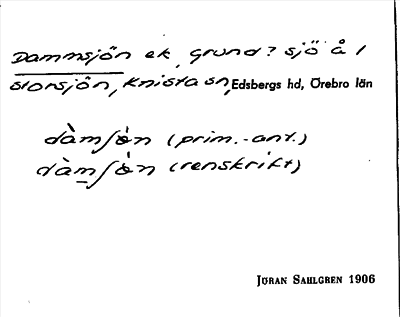 Dammsjön ek, grund? sjö å /
storsjön, Knista sn, Edsbergs hd, Örebro län
dàmʃə̀n (prim.-ant.)
dàmʃə̀n (renskrift)
JÖRAN SAHLGREN 1906